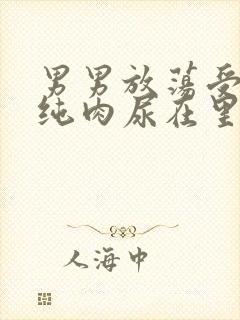 男男放荡受
纯肉尿在里
人海中